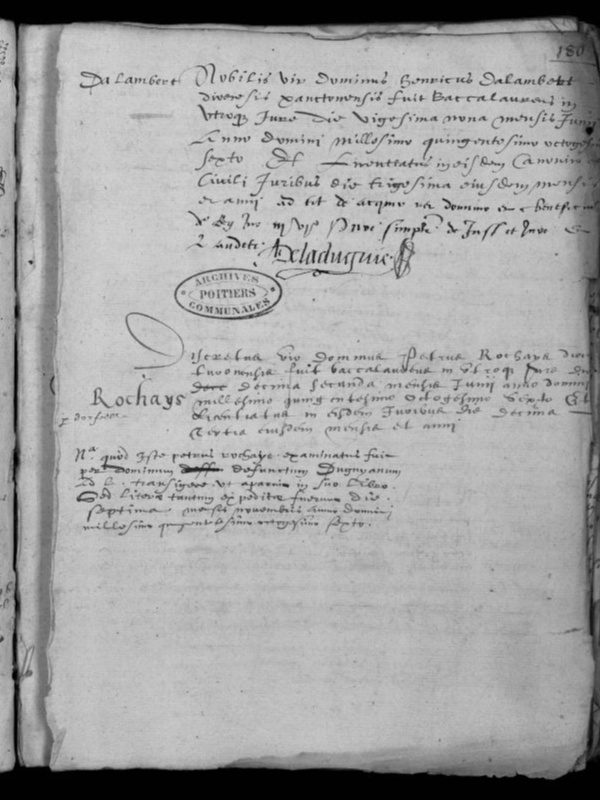 180
Dalambert Nobilis vir dominus Henricus Dalambert
diocesis xanctonensis fuit baccalaureus in
vtroq Jure die vigesima nona mensis Junii
Anno domini millesimo quingentesimo octoges
sexto Et licentiatus in eisdem Canonico
Civili Juribus die trigesima eiusdem mensis
et anni ad tit de acqui rer dominio et c benefic
de Reg Jur in
L audete
Deladuguie
ARCHIVES
POITIERS
COMMUNALES
Discretus vir dominus Petrus Rochays dioc
turonensis fuit baccalaureus in vtroq Jure die
decima secunda mensis Junii anno domini
Rochays millesimo quingentesimo octogesimo sexto Et
licentiatus in eisdem Juribus die decima
tertia eiusdem mensis et anni
Na quod Iste petrus rochays examinatus fuit
per dominum defunctum Dugnyanum
ad l. transigere vt apparet in suo libro.
Sed litere tantum expedite fuerunt die
septima mensis novembris anno domini
millesimo quingentesimo octogesimo sexto.